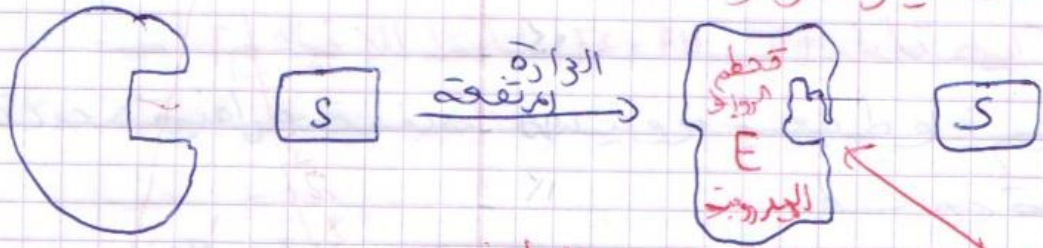 S
الحرارة
المرتفعة
تحطم
الروابط
E
الهيدروجينية
S